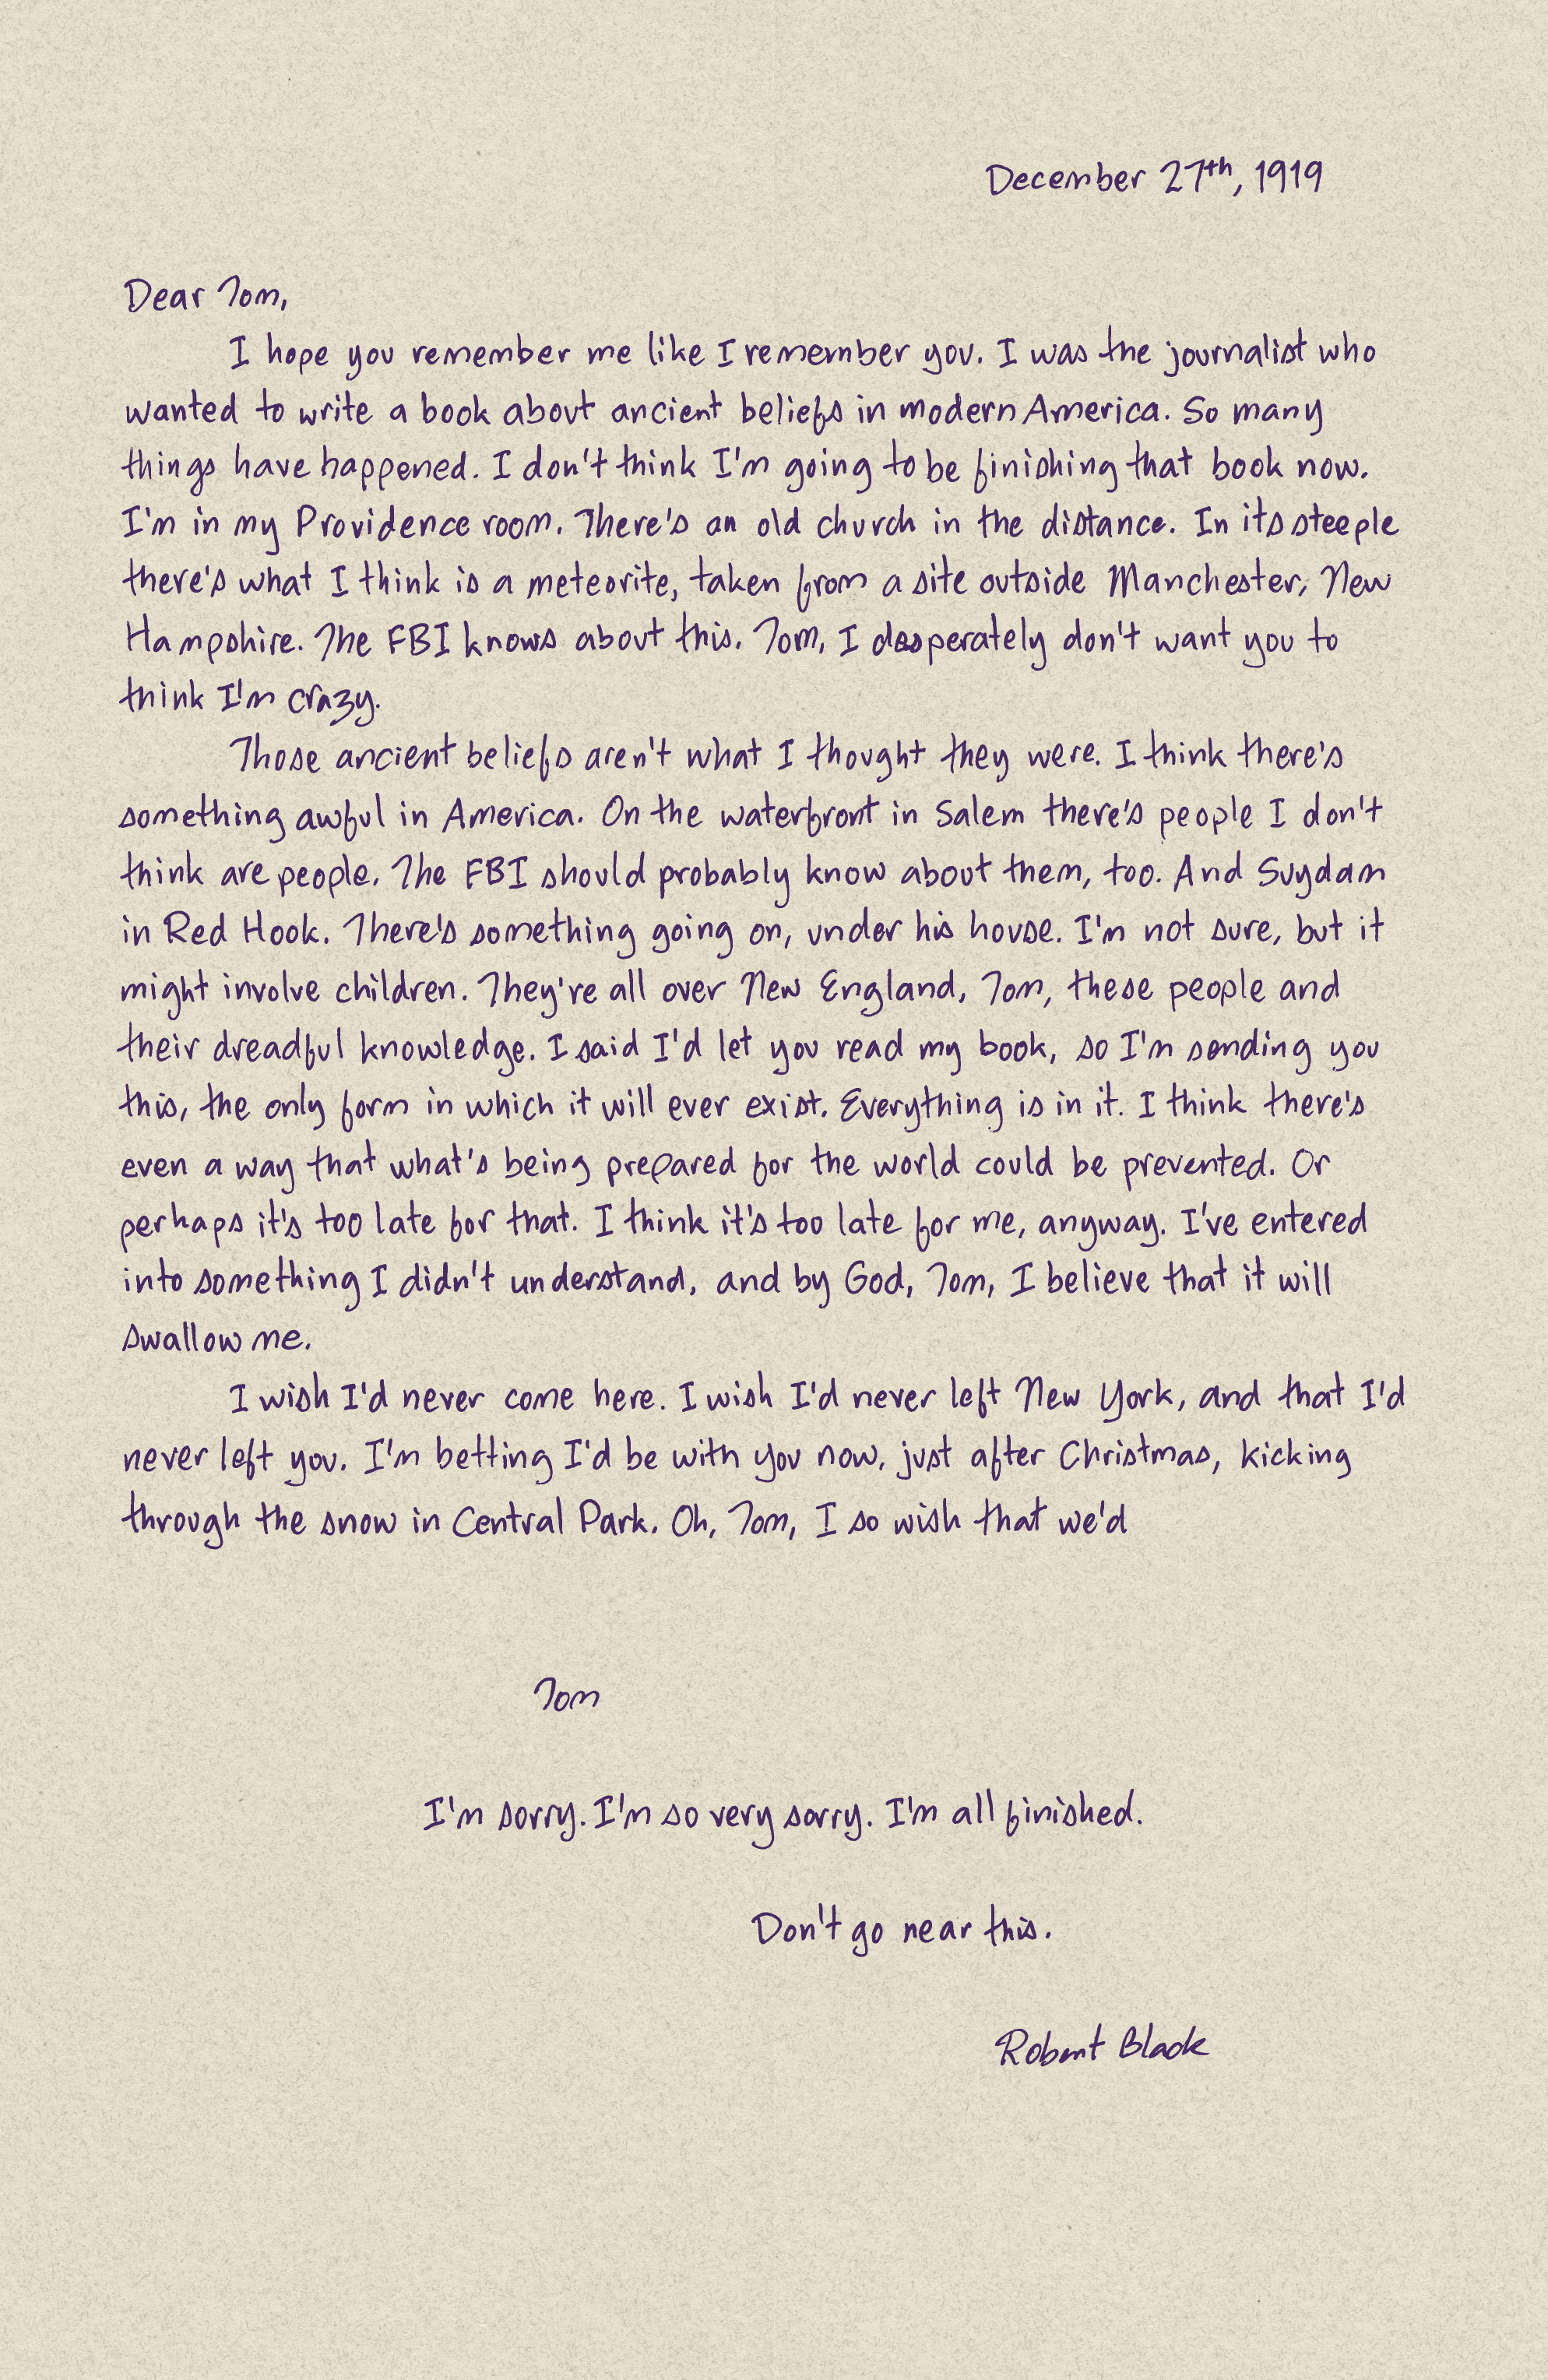 December 27th, 1919
Dear Tom,
I hope you remember me like I remember you. I was the journalist who
wanted to write a book about ancient beliefs in modern America. So many
things have happened. I don't think I'm going to be finishing that book now.
I'm in my Providence room. There's an old church in the distance. In its steeple
there's what I think is a meteorite, taken from a site outside Manchester, New
Hampshire. The FBI knows about this. Tom, I desperately don't want you to
think I'm crazy.
Those ancient beliefs aren't what I thought they were. I think there's
something awful in America. On the waterfront in Salem there's people I don't
think are people. The FBI should probably know about them, too. And Suydam
in Red Hook. There's something going on, under his house. I'm not sure, but it
might involve children. They're all over New England, Tom, these people and
their dreadful knowledge. I said I'd let you read my book, so I'm sending you
this, the only form in which it will ever exist. Everything is in it. I think there's
even a way that what's being prepared for the world could be prevented. Or
perhaps it's too late for that. I think it's too late for me, anyway. I've entered
into something I didn't understand, and by God, Tom, I believe that it will
swallow me.
I wish I'd never come here. I wish I'd never left New York, and that I'd
never left you. I'm betting I'd be with you now, just after Christmas, kicking
through the snow in Central Park. Oh, Tom, I so wish that we'd
Tom
I'm sorry. I'm so very sorry. I'm all finished.
Don't go near this.
Robert Black